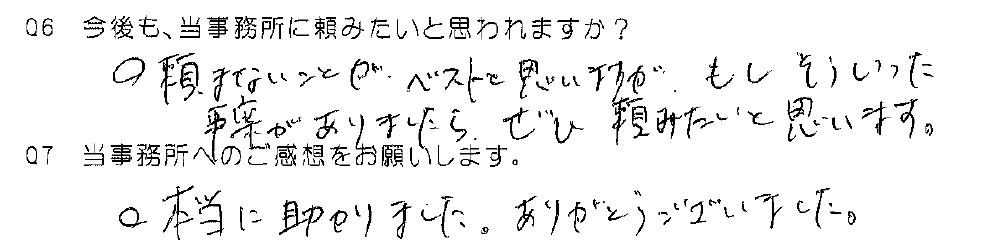 Q6 今後も、当事務所に頼みたいと思われますか？
○頼まないことが、ベストと思いますが、もしそういった
事案がありましたら、ぜひ頼みたいと思います。
Q7 当事務所へのご感想をお願いします。
○本当に助かりました。ありがとうございました。